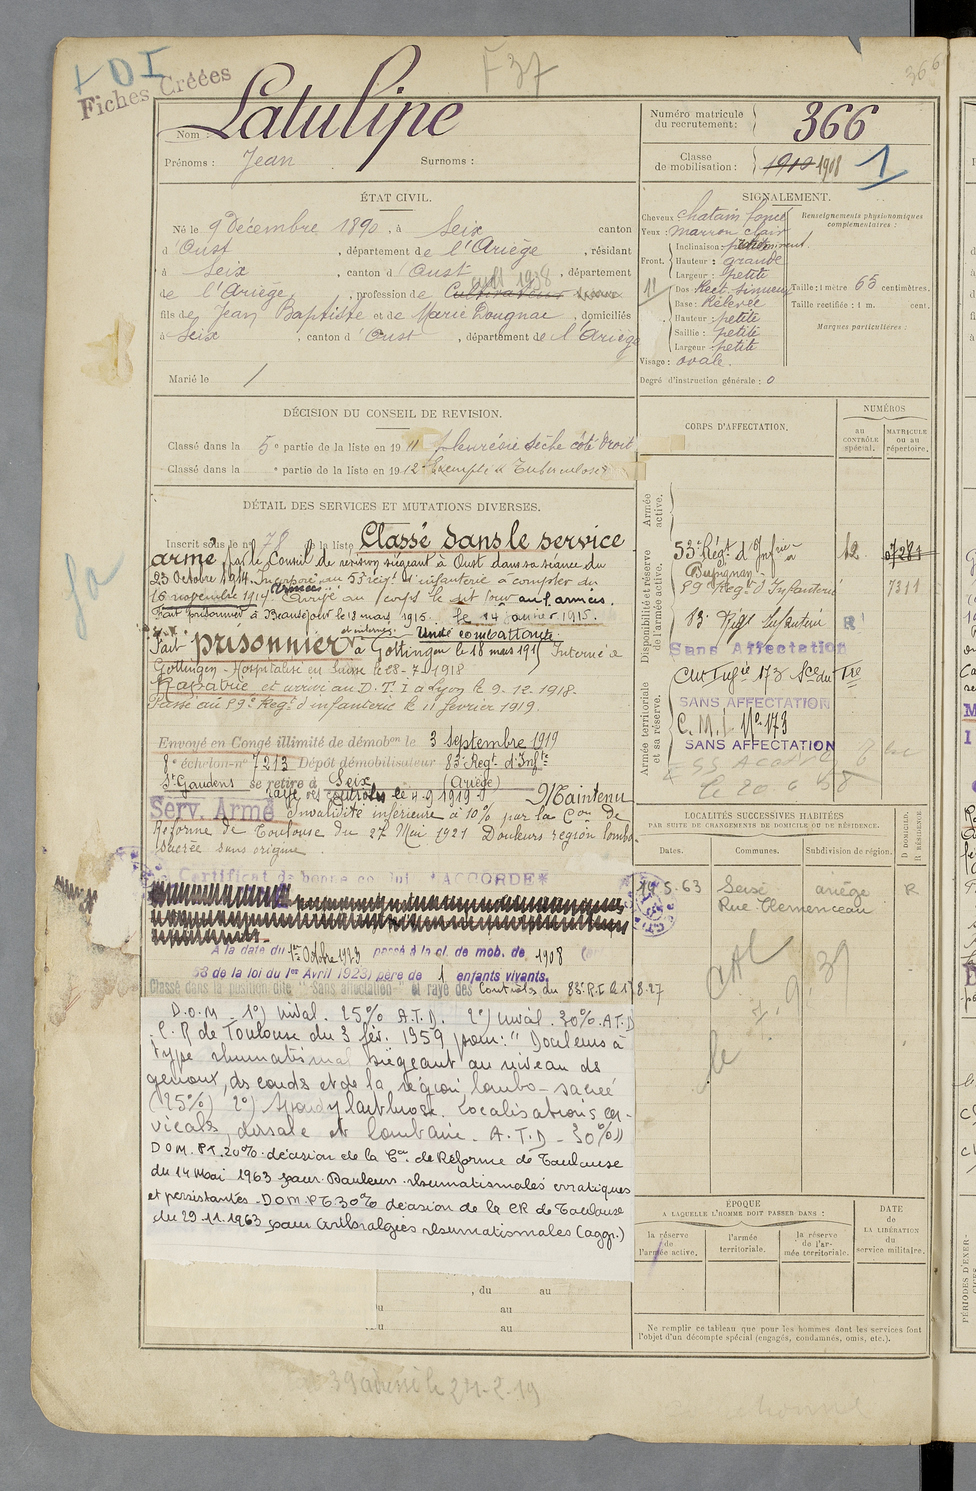 + D I
Fiches Créées
F 37
366
Nom : Latulipe
Prénoms : Jean Surnoms :
Numéro matricule du recrutement : 366
Classe de mobilisation : 1910 1908 1
ÉTAT CIVIL.
Né le 9 Décembre 1890, à Seix canton
d'Oust, département de l'Ariège, résidant
à Seix, canton d'Oust, département
de l'Ariège, profession de Cultivateur
fils de Jean Baptiste et de Marie Pougnac, domiciliés
à Seix, canton d'Oust, département de l'Ariège
Marié le /
SIGNALEMENT.
Cheveux chatain foncé
Yeux : marron clair
Front. Inclinaison :
Hauteur : grande
Largeur : petite
11
Dos Rect. sinueux
Base : Relevée
Hauteur : petite
Saillie : petite
Largeur : petite
Visage : ovale.
Renseignements physionomiques complémentaires :
Taille : 1 mètre 65 centimètres.
Taille rectifiée : 1 m. cent.
Marques particulières :
Degré d'instruction générale : 0
DÉCISION DU CONSEIL DE REVISION.
Classé dans la 5e partie de la liste en 1911 pleurésie sèche côté droit
Classé dans la e partie de la liste en 1912 Exempté Tuberculose
DÉTAIL DES SERVICES ET MUTATIONS DIVERSES.
Inscrit sous le no 78 de la liste Classé dans le service
armé par le Conseil de révision siégeant à Oust dans sa séance du
23 Octobre 1914. Incorporé au 53e régt d'infanterie à compter du
16 novembre 1914. Arrivé au corps le dit jour aux armées.
Fait prisonnier à Beauséjour le 18 mars 1915. le 14 janvier 1915.
et interné. Unité combattante
Fait prisonnier à Gottingen le 18 mars 1915 Interné à
Gottingen - Hospitalisé en Suisse le 28-7-1918
Rapatrié et arrivé au D.T.I à Lyon le 9-12-1918.
Passé au 59e Régt d'infanterie le 11 février 1919.
Envoyé en Congé illimité de démobon le 3 Septembre 1919
8e échelon no 7213 Dépôt démobilisateur 83e Régt d'Infie
St Gaudens se retire à Seix (Ariège)
rayé des contrôles le 4-9-1919 Maintenu
Serv. Armé Invalidité inférieure à 10% par la Con de
Réforme de Toulouse du 27 Mai 1921 Douleurs région lombo-
sacrée sans origine.
Certificat de bonne conduite "ACCORDE"
A la date du 1er Octobre 1923 passé à la cl. de mob. de 1908
58 de la loi du 1er Avril 1923) père de 1 enfants vivants.
Classé dans la position dite "Sans affectation" et rayé des Contrôles du 83e R.I. le 1-8-27
D.O.M - 1°) inval. 25% A.T.D. 2°) inval. 30% A.T.D
C.R de Toulouse du 3 fév. 1959 pour : "Douleurs à
type rhumatismal siégeant au niveau des
genoux, des coudes et de la région lombo-sacrée
(25%) 2°) Spondylarthrose. Localisations cer-
vicale, dorsale et lombaire. A.T.D - 30%))
DOM. PT. 20% décision de la Con de Réforme de Toulouse
du 14 Mai 1963 pour Douleurs rhumatismales erratiques
et persistantes - D.O.M. PT 30% décision de la CR de Toulouse
du 29.11.1963 pour Arthralgies rhumatismales (aggr.)
, du au
du au
du au
CORPS D'AFFECTATION.
NUMÉROS
au CONTRÔLE spécial.
MATRICULE ou au répertoire.
Armée active.
Disponibilité et réserve de l'armée active.
Armée territoriale et sa réserve.
53e Régt d'Infie 12
Perpignan
59e Régt d'Infanterie 7311
83e Régt Infanterie
Sans Affectation
SANS AFFECTATION
C.M.I. No 173
SANS AFFECTATION
LOCALITÉS SUCCESSIVES HABITÉES
PAR SUITE DE CHANGEMENTS DE DOMICILE OU DE RÉSIDENCE.
Dates. Communes. Subdivision de région. D DOMICILE. R RÉSIDENCE
5-63 Seix ariège R
Rue Clemenceau
ÉPOQUE
A LAQUELLE L'HOMME DOIT PASSER DANS :
la réserve de l'armée active.
l'armée territoriale.
la réserve de l'armée territoriale.
DATE de LA LIBÉRATION du service militaire.
Ne remplir ce tableau que pour les hommes dont les services font
l'objet d'un décompte spécial (engagés, condamnés, omis, etc.).
le 24-2-19